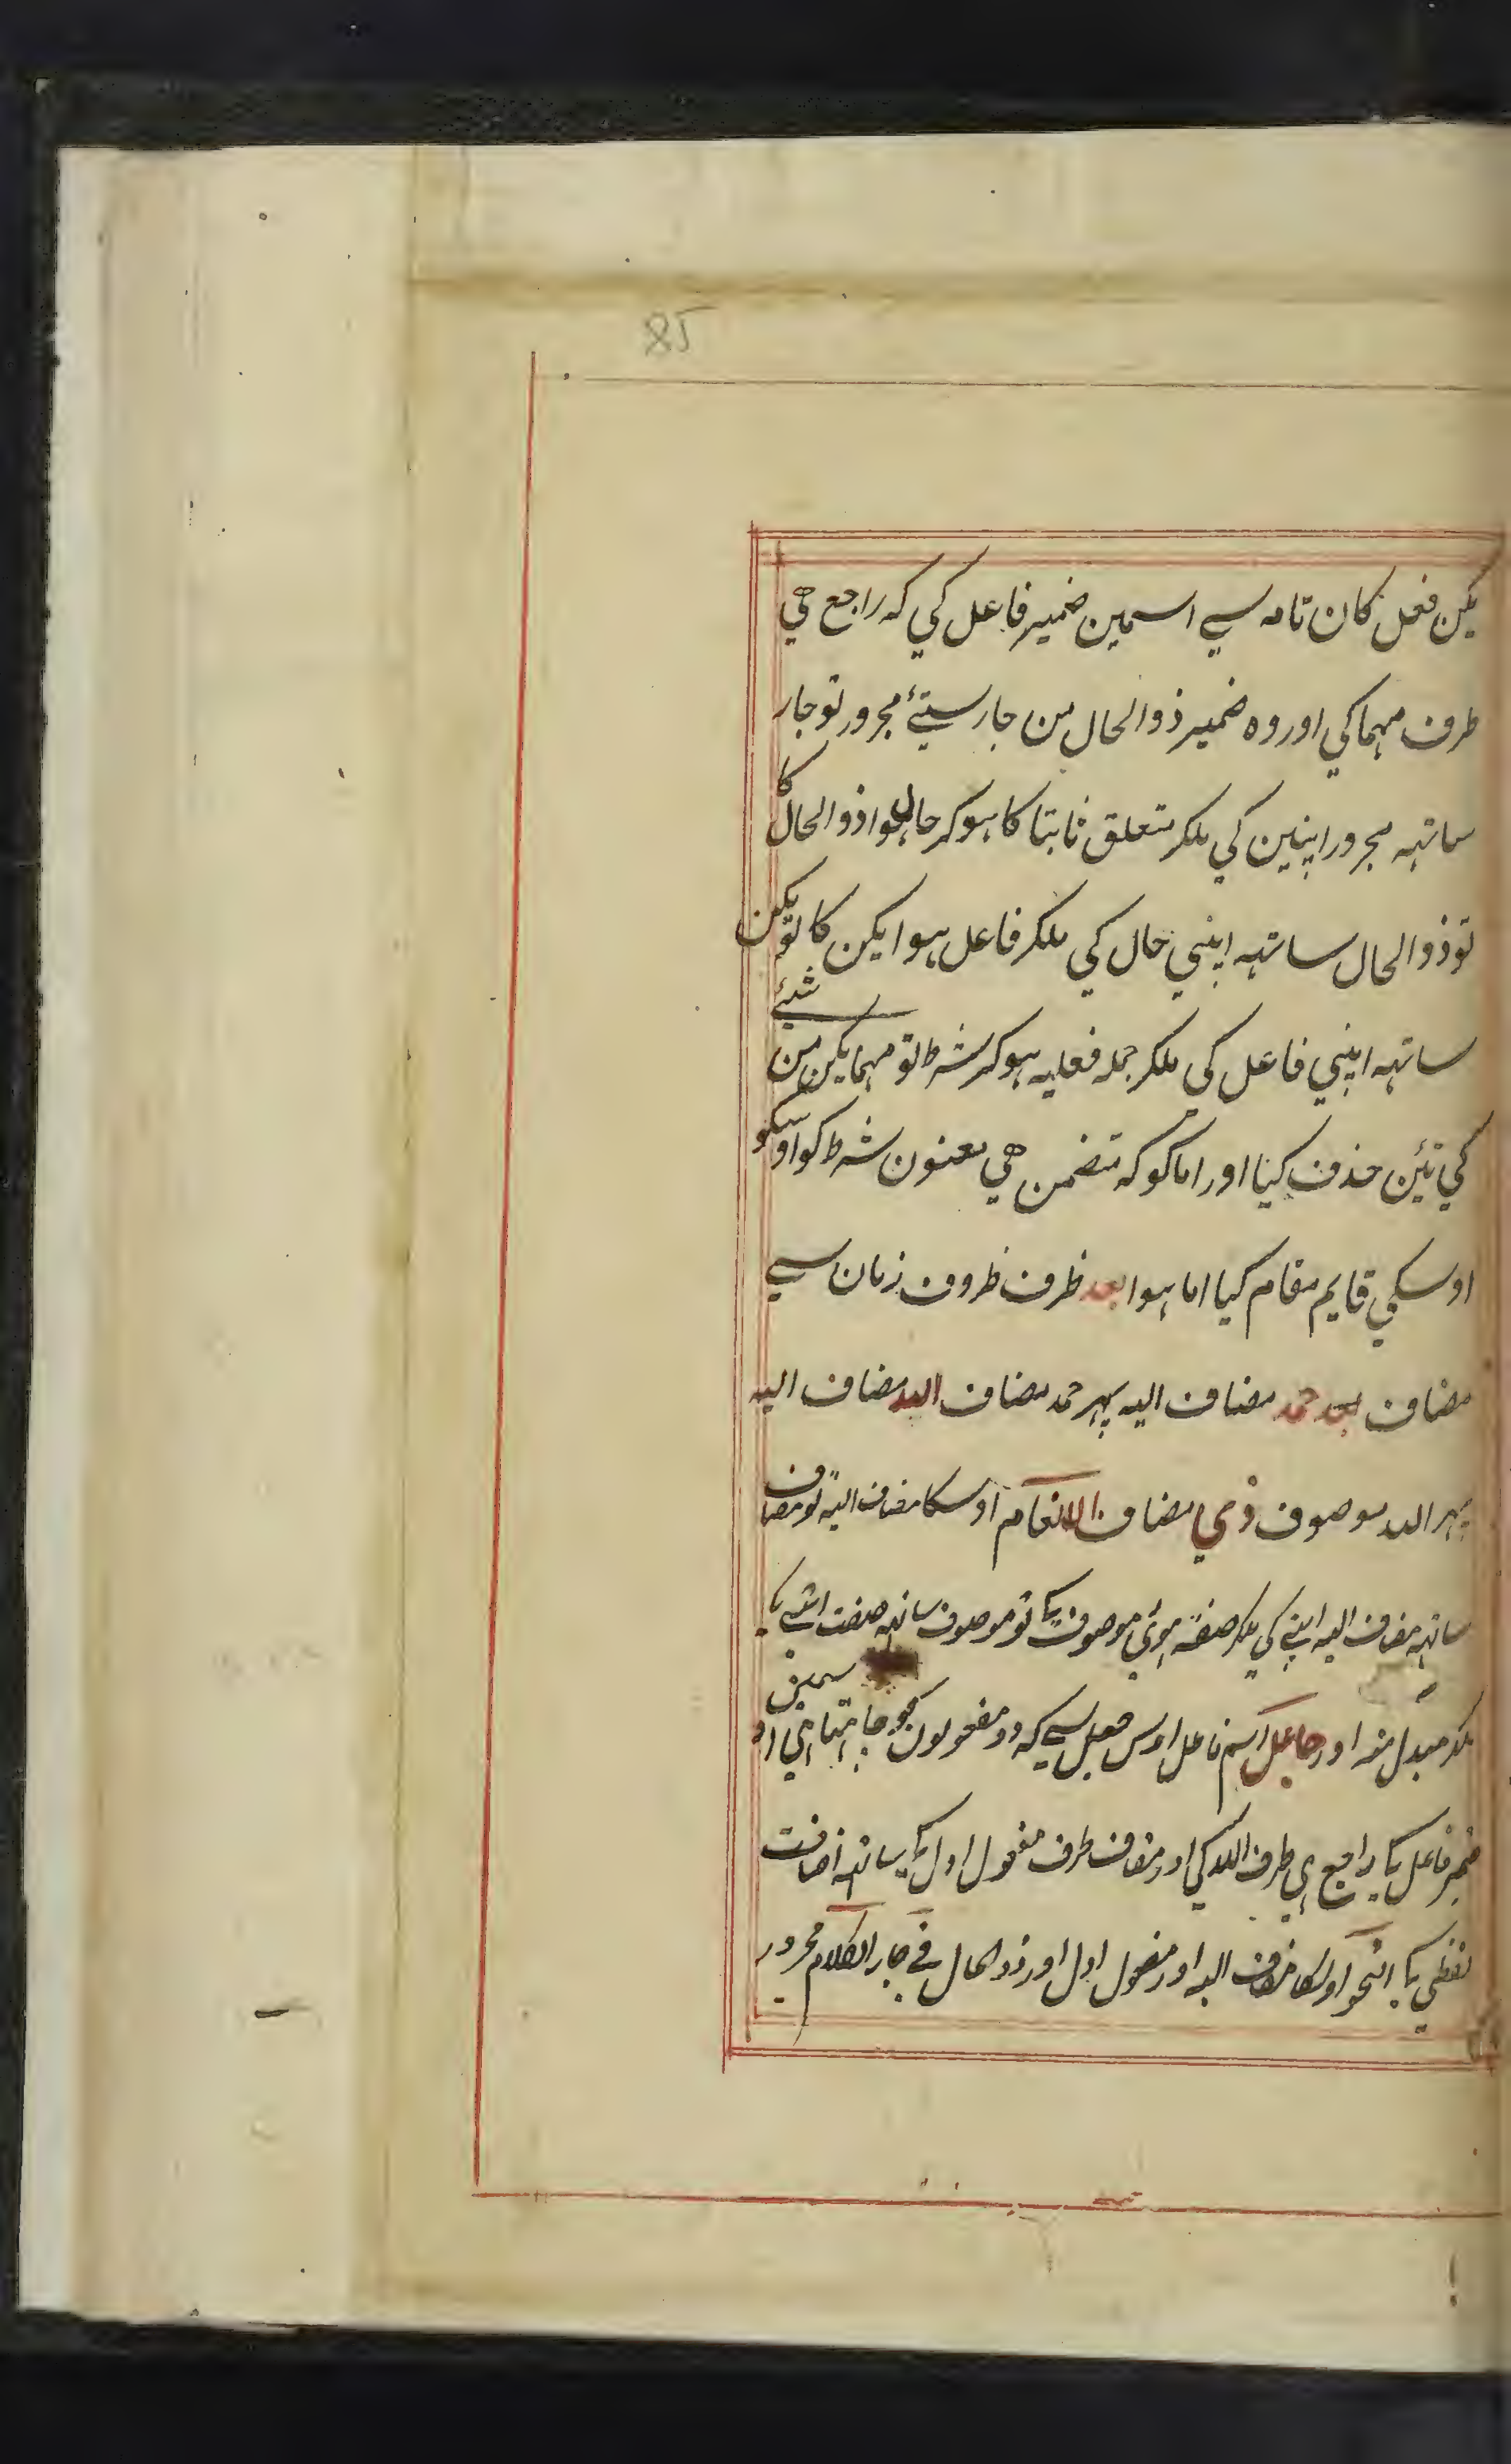 85
یکن فعل کان تامه سے اسمین ضمیر فاعل کي که راجع هي
طرف مهما کي اور وه ضمیر ذوالحال من جار ستئے مجرور تو جار
ساتهه مجرور اپنین کي ملکر متعلق ثابتا کا هوکر حال هوا ذوالحال کا
تو ذوالحال ساتهه اپنی حال کي ملکر فاعل هوا یکن کا تو یکن
ساتهه اپني فاعل کی ملکر جمله فعلیه هوکر شرط تو مهما یکن من شئے
کي تئن حذف کیا اور اما کو که متضمن هي معنون شرط کو اوسکو
اوسکي قایم مقام کیا اما هوا بعد ظرف ظروف زمان سے
مضاف بعد حمد مضاف الیه پهر حمد مضاف الله مضاف الیه
پهر الله موصوف ذي مضاف الانعام اوسکا مضاف الیه تو مضاف
ساتهه مضاف الیه اپنے کي ملکر صفة هوئي موصوف کا تو موصوف ساتهه صفت اپنے کا
ملکر مبدل منه اور جاعل اسم فاعل اوس فعل سے که دو مفعولون کو چاهتا هي اوسمین
ضمیر فاعل کا راجع هي طرف الله کي اور مضاف طرف مفعول اول کا ساتهه اضافت
لفظي کا النحو اوسکا مضاف الیه اور مفعول اول اور ذوالحال في جار الکلام مجرور